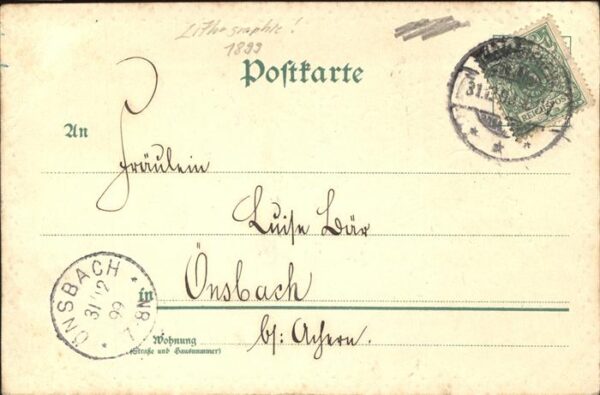 Lithographie!
1899
Postkarte
An
Fräulein
Luise Bär
in Önsbach
bei Achern.
Wohnung
(Straße und Hausnummer)
ÖNSBACH
31/12
99
31.12.99
REICHSPOST